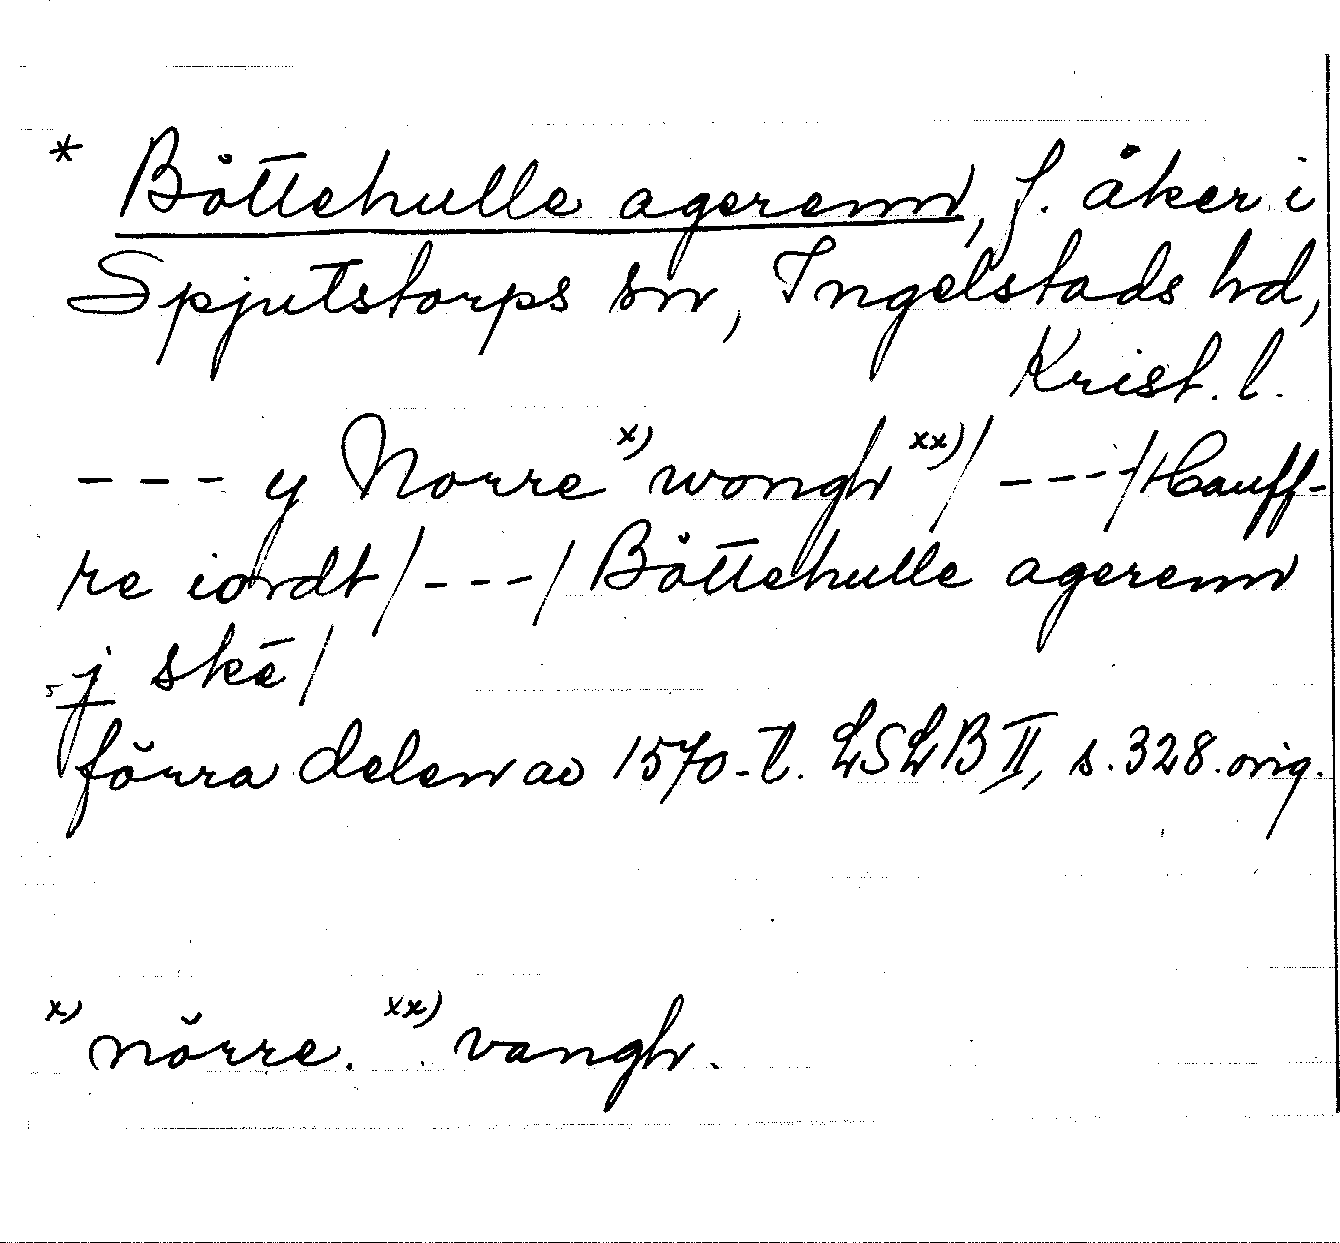 * Båttehulle agerenn, f. åker i
Spjutstorps sn, Ingelstads hd,
Krist. l.
--- y Norre x) wongh xx)/ ---/Hauff-
re iordt/---/Båttehulle agerenn
j skē/
förra delen av 1570-t. LSLB II, s. 328. orig.
x) nörre. xx) vangh.